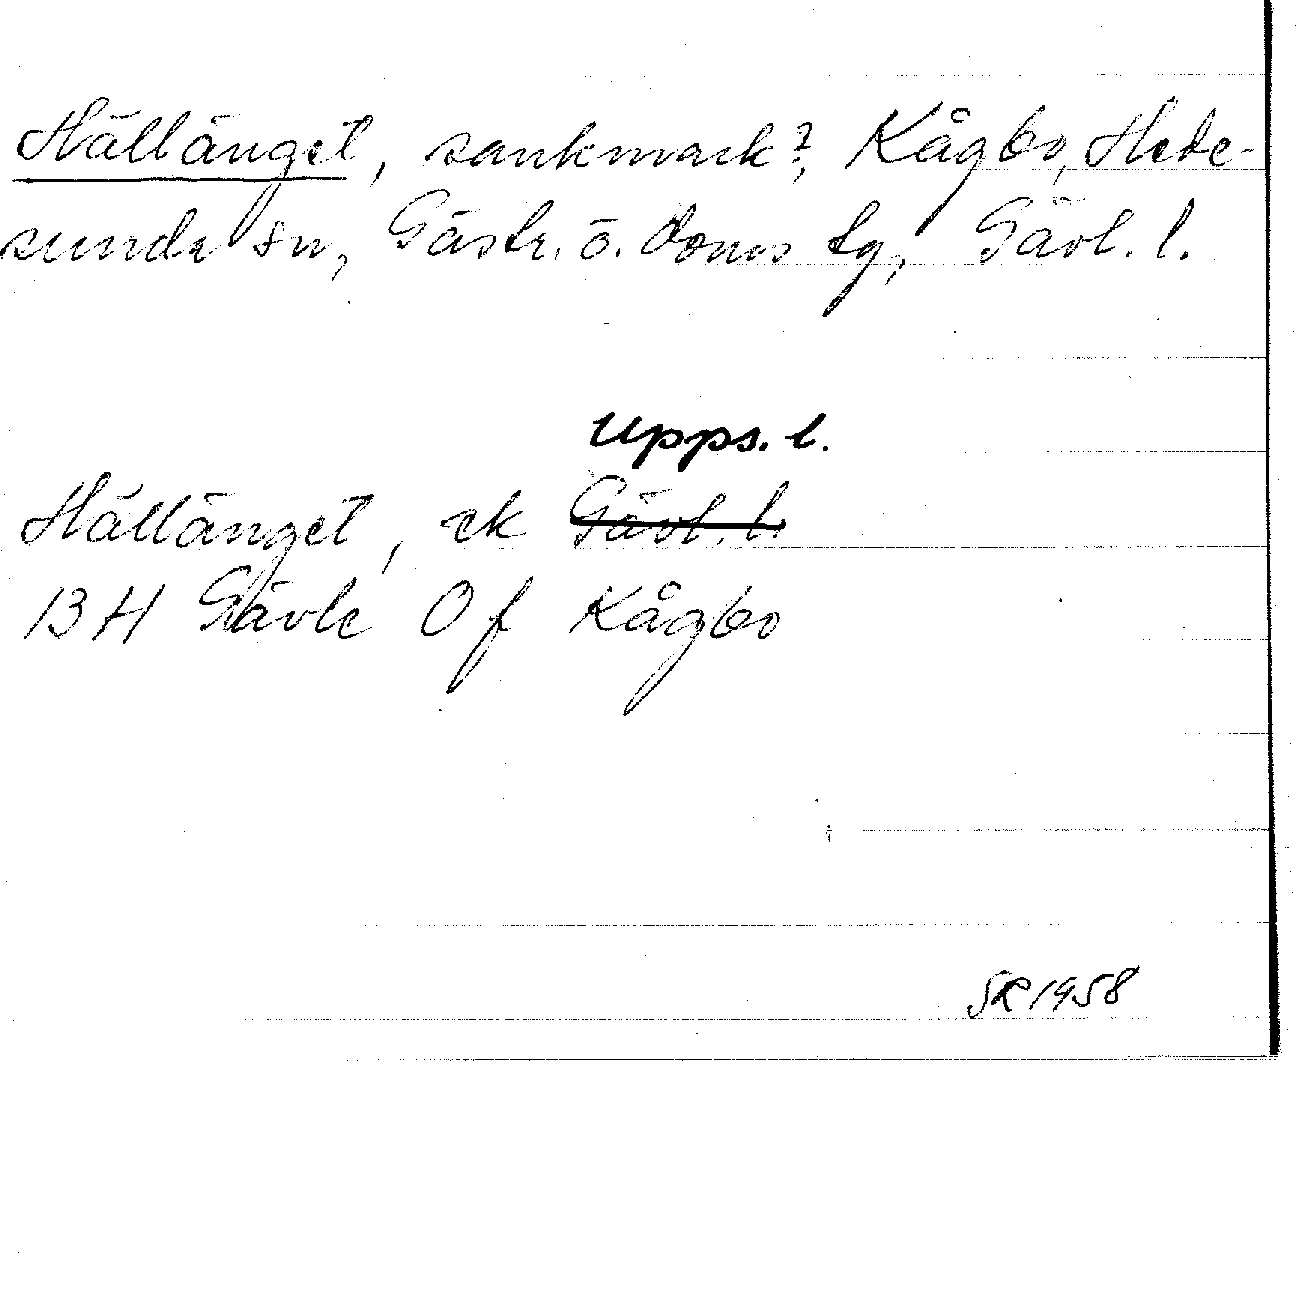 Hällänget, sankmark?, Kågbo, Hede-
sunda sn, Gästr. ö. doms tg, Gävl. l.
Upps. l.
Hällänget, ek Gävl. l.
13H Gävle 0f Kågbo
SR 1958